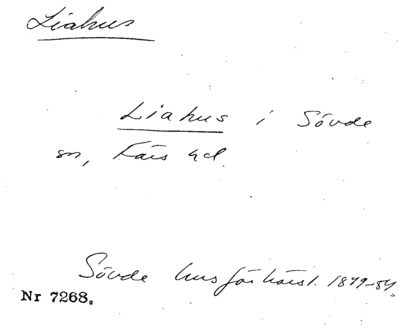 Liahus
Liahus i Sövde
sn, Färs hd.
Sövde husförhörsl. 1879-84
Nr 7268.